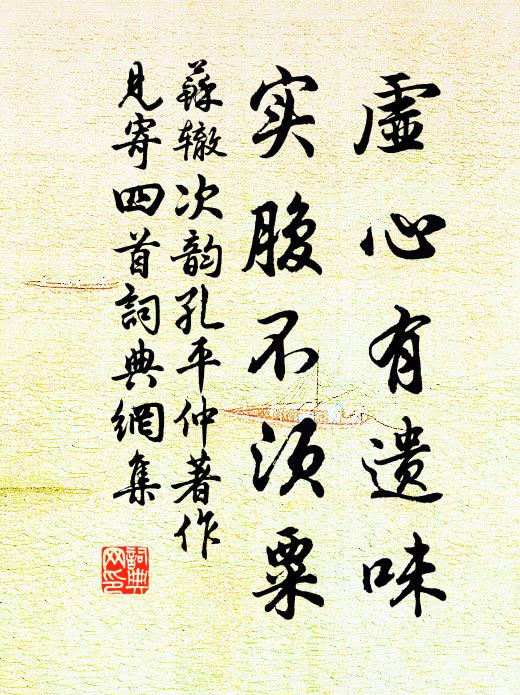 虚心有遗味
实腹不须粟
蘇辙次韵孔平仲著作
見寄四首詞典網集
詞典
网印